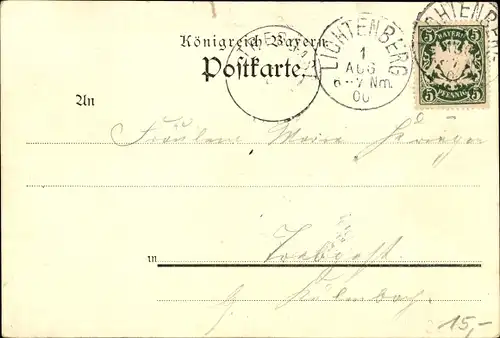 Königreich Bayern.
Postkarte.
LICHTENBERG
1
AUG
6-7 Nm.
00
LICHTENBERG
BAYERN
5 5
5 PFENNIG 5
An
Fräulein Marie
in Trebgast
b/ Kulmbach.
15,-